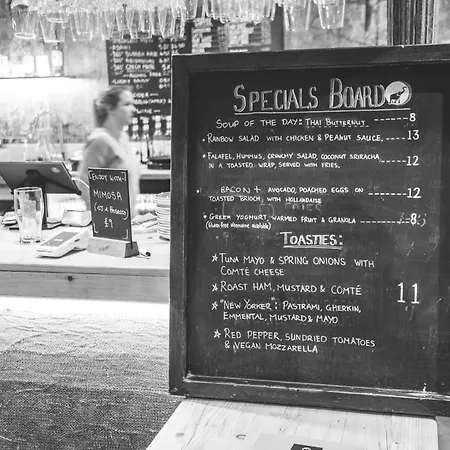 SPECIALS BOARD
SOUP OF THE DAY: THAI BUTTERNUT ------ 8
RAINBOW SALAD WITH CHICKEN & PEANUT SAUCE, ---- 13
FALAFEL, HUMMUS, CRUNCHY SALAD, COCONUT SRIRACHA
IN A TOASTED WRAP, SERVED WITH FRIES. ------ 12
BACON + AVOCADO, POACHED EGGS ON ------ 12
TOASTED BRIOCH WITH HOLLANDAISE
GREEK YOGHURT, WARMED FRUIT & GRANOLA ------ 8.5
TOASTIES:
TUNA MAYO & SPRING ONIONS WITH
COMTÉ CHEESE
ROAST HAM, MUSTARD & COMTÉ
11
"NEW YORKER": PASTRAMI, GHERKIN,
EMMENTAL, MUSTARD & MAYO
RED PEPPER, SUNDRIED TOMATOES
& VEGAN MOZZARELLA
ENJOY WITH
MIMOSA
£9